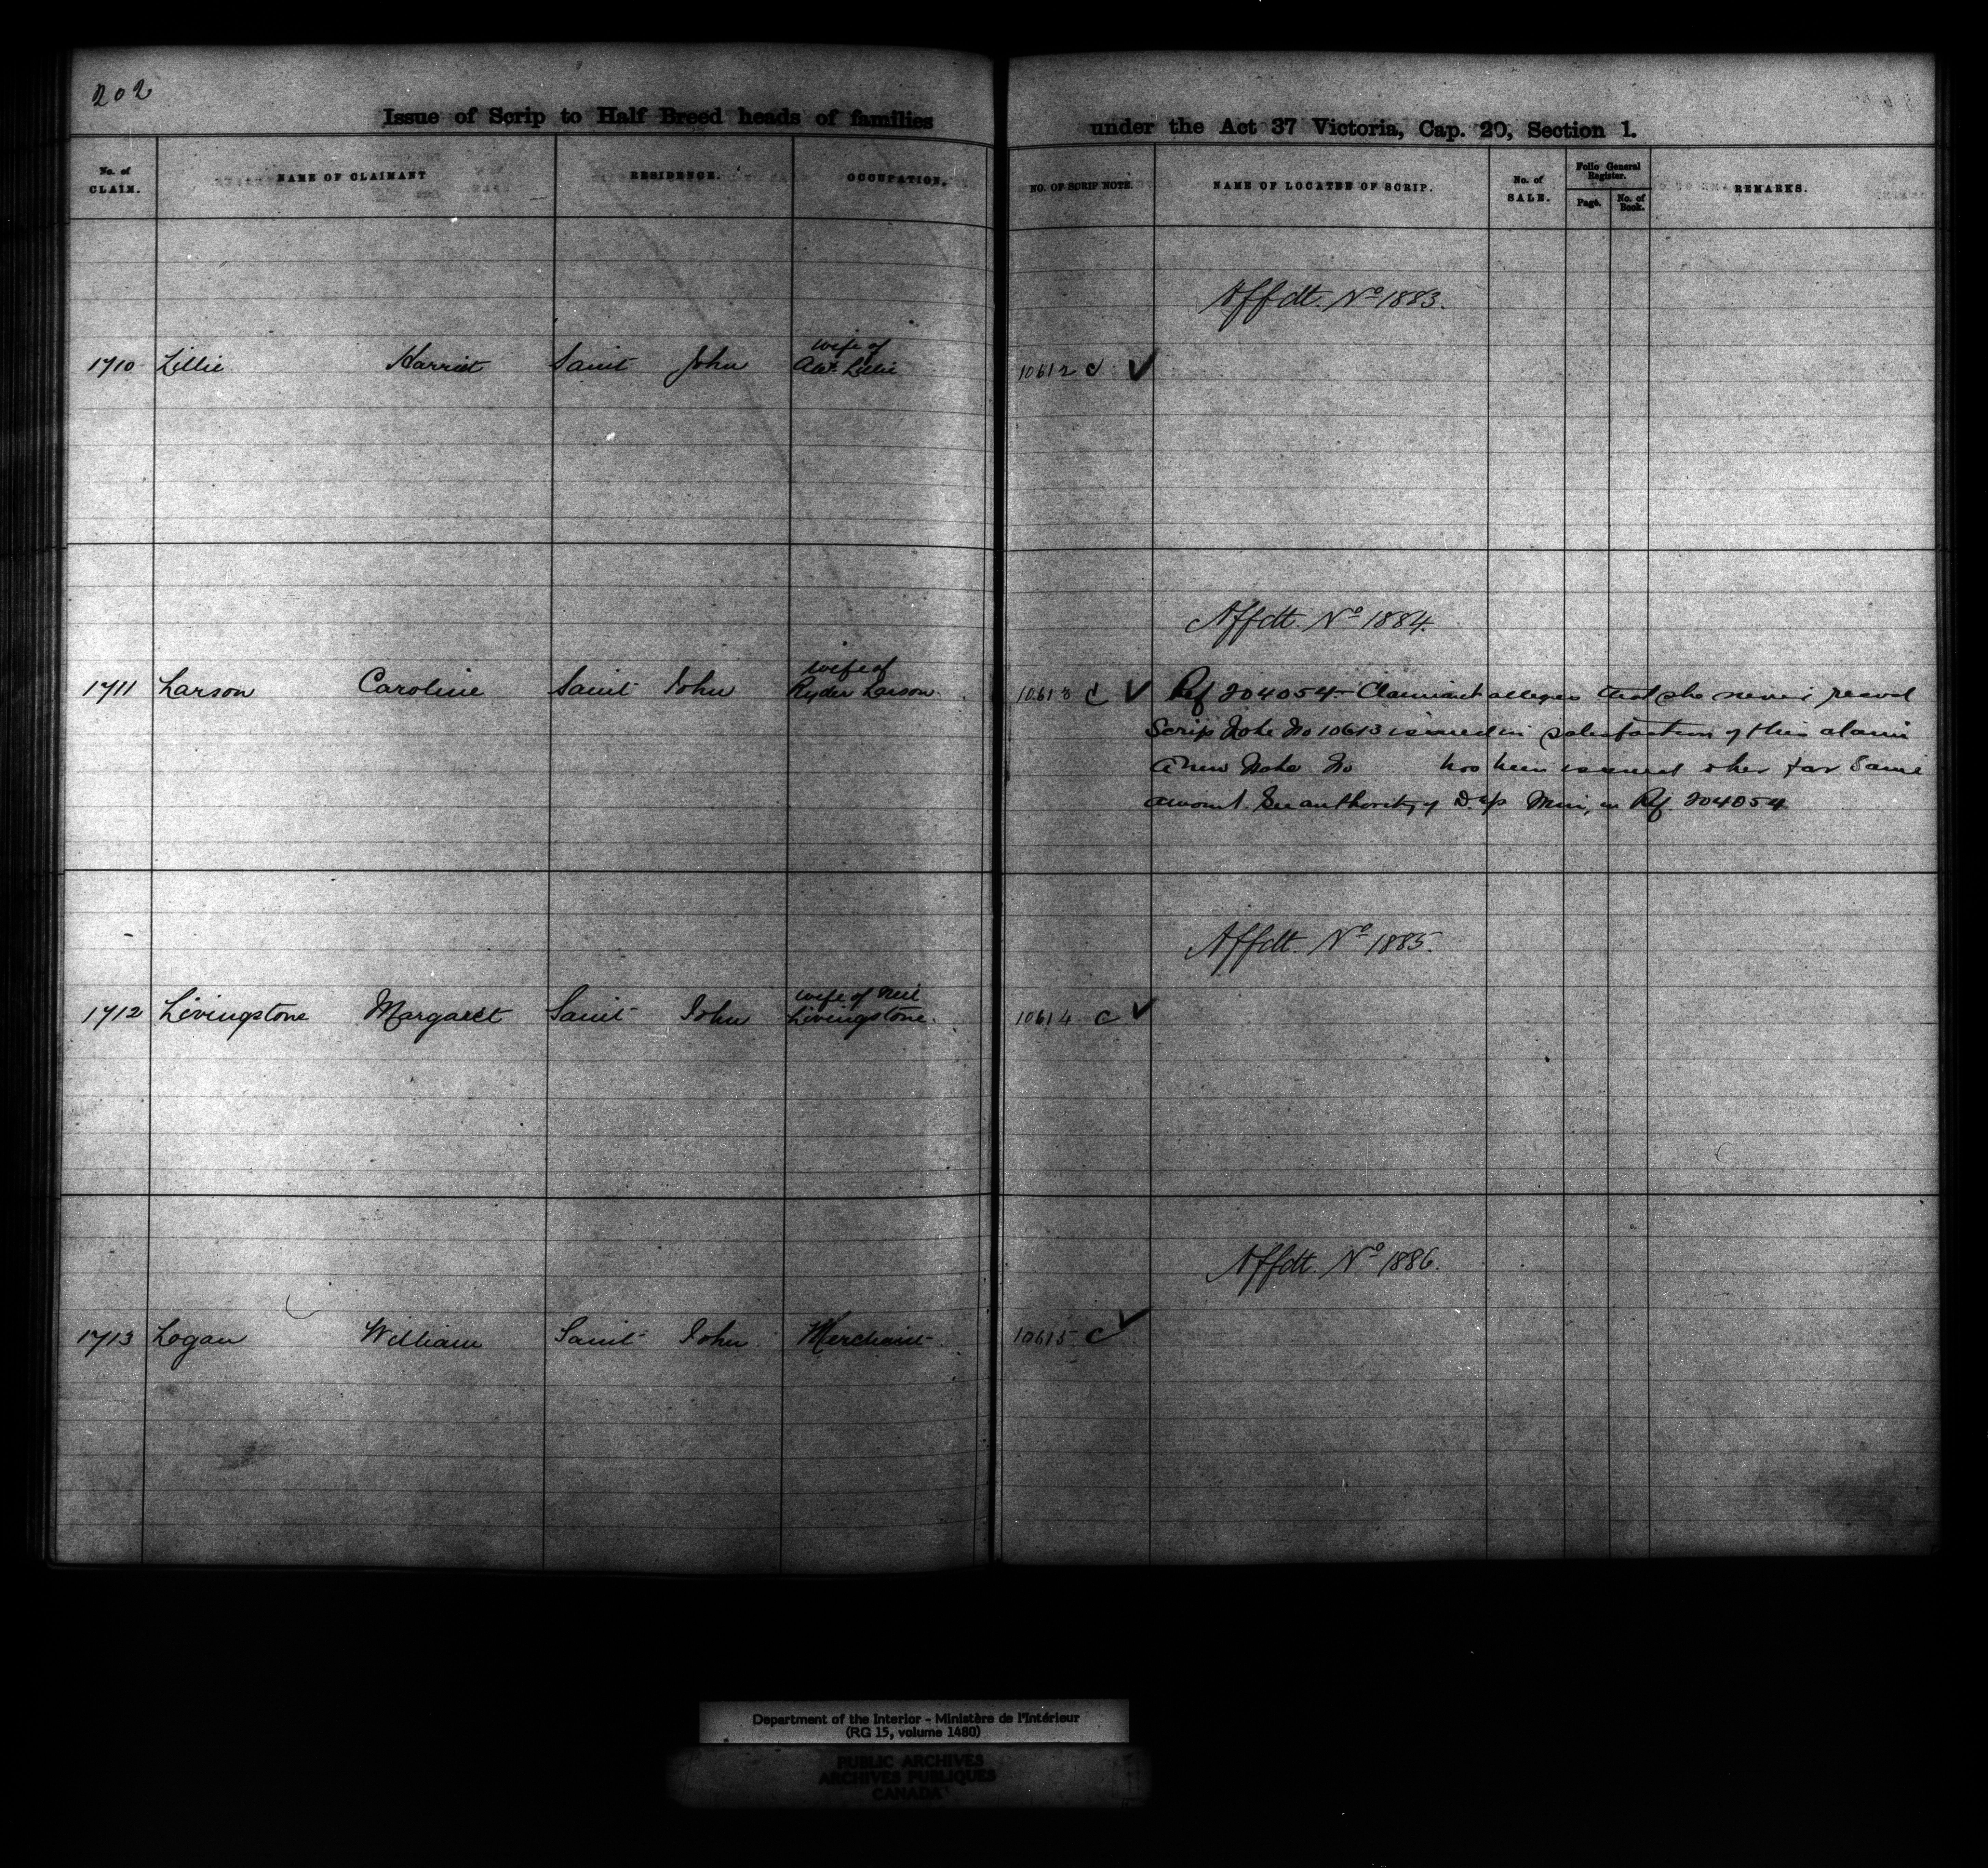 202
Issue of Scrip to Half Breed heads of families under the Act 37 Victoria, Cap. 20, Section 1.
No. of CLAIM. NAME OF CLAIMANT RESIDENCE. OCCUPATION. NO. OF SCRIP NOTE. NAME OF LOCATEE OF SCRIP. No. of SALE. Folio General Register. Page. No. of Book. REMARKS.
Affdt. No 1883.
wife of
1710 Lillie Harriet Saint John Alex Lillie 10612 c ✓
Affdt. No 1884.
wife of
1711 Larson Caroline Saint John Ryder Larson. 10613 c ✓ Ref 204054 - Claimant alleges that she never recevd
Scrip Note No 10613 issued in satisfaction of this claim
A new Note No has been issued to her for Same
amount. See authority of Dep Min, in Ref. 204054
Affdt. No 1885.
wife of Neil
1712 Livingstone Margaret Saint John Livingstone. 10614 c ✓
Affdt. No 1886.
1713 Logan William Saint John Merchant 10615 c ✓
Department of the Interior - Ministère de l'Intérieur
(RG 15, volume 1480)
PUBLIC ARCHIVES
ARCHIVES PUBLIQUES
CANADA